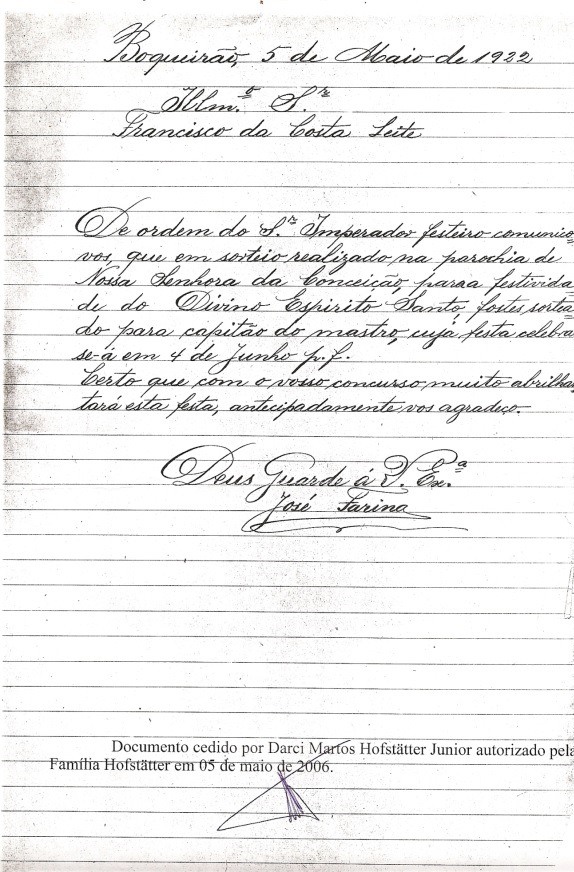 Boqueirão, 5 de Maio de 1922
Illm.º S.r
Francisco da Costa Leite
De ordem do S.r Imperador festeiro comunico
vos, que em sorteio realizado, na parochia de
Nossa Senhora da Conceição, para a festivida
de do Divino Espirito Santo, fostes sortea
do para capitão do mastro, cuja festa celebra
se-á em 4 de Junho p.f.
Certo que com o vosso concurso, muito abrilhan
tará esta festa, antecipadamente vos agradeço.
Deus Guarde á V. Ex.ª
José Farina
Documento cedido por Darci Martos Hofstätter Junior autorizado pela
Família Hofstätter em 05 de maio de 2006.